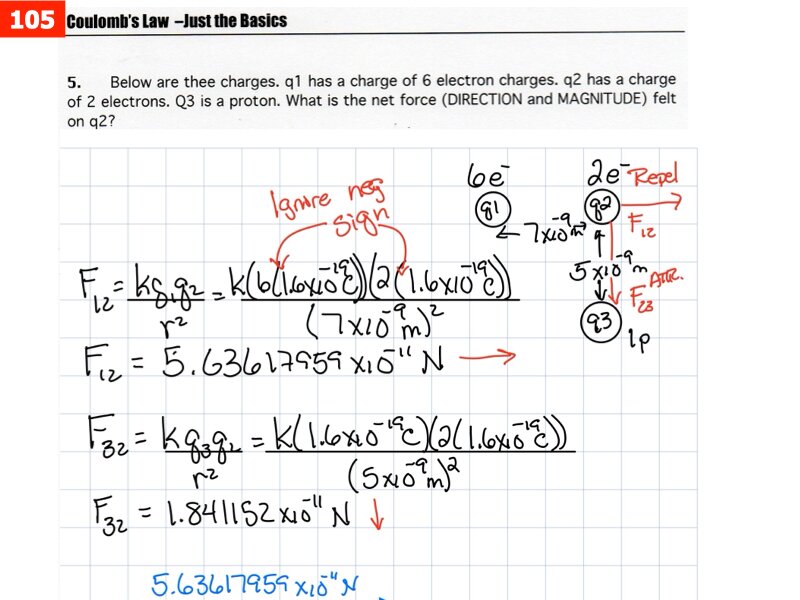 105 Coulomb's Law –Just the Basics
5. Below are thee charges. q1 has a charge of 6 electron charges. q2 has a charge
of 2 electrons. Q3 is a proton. What is the net force (DIRECTION and MAGNITUDE) felt
on q2?
6e⁻ 2e⁻ Repel
Ignore neg
sign
q1 q2
7x10⁻⁹m
F₁₂
5x10⁻⁹m
Attr.
F₂₃
q3
1p
F₁₂ = kq₁q₂/r² = k(6(1.6x10⁻¹⁹C))(2(1.6x10⁻¹⁹C))/(7x10⁻⁹m)²
F₁₂ = 5.63617959 x10⁻¹¹ N →
F₃₂ = kq₃q₂/r² = k(1.6x10⁻¹⁹C)(2(1.6x10⁻¹⁹C))/(5x10⁻⁹m)²
F₃₂ = 1.841152 x10⁻¹¹ N ↓
5.63617959 x10⁻¹¹ N